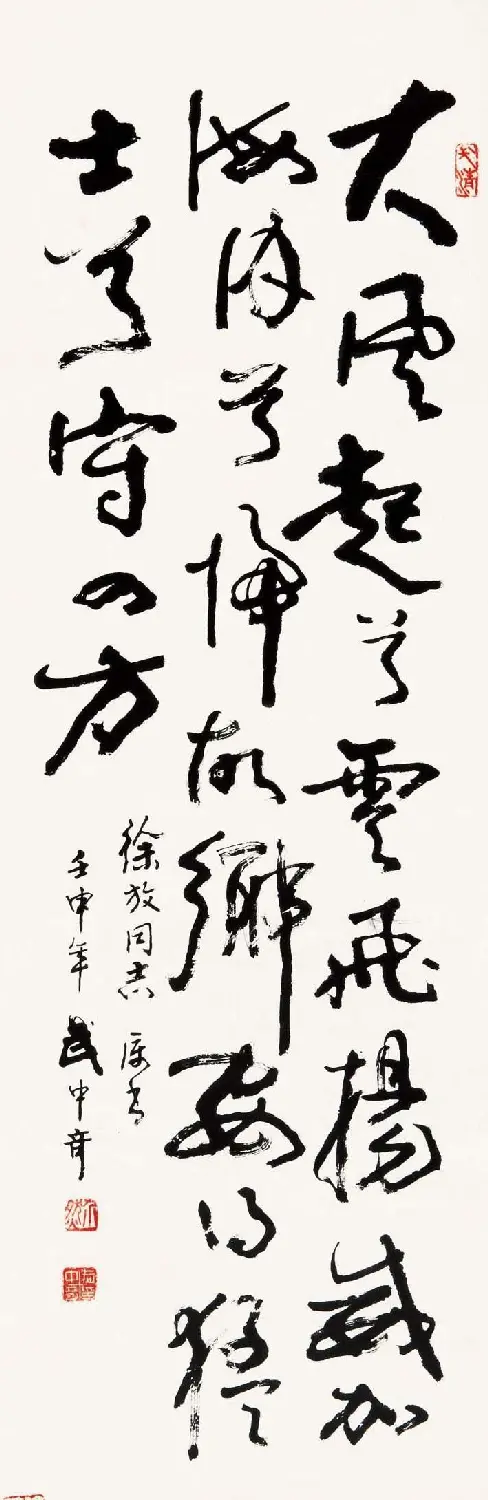 大風起兮雲飛揚威加
海內兮歸故鄉安得猛
士兮守四方
徐放同志 属书
壬申年 武中奇